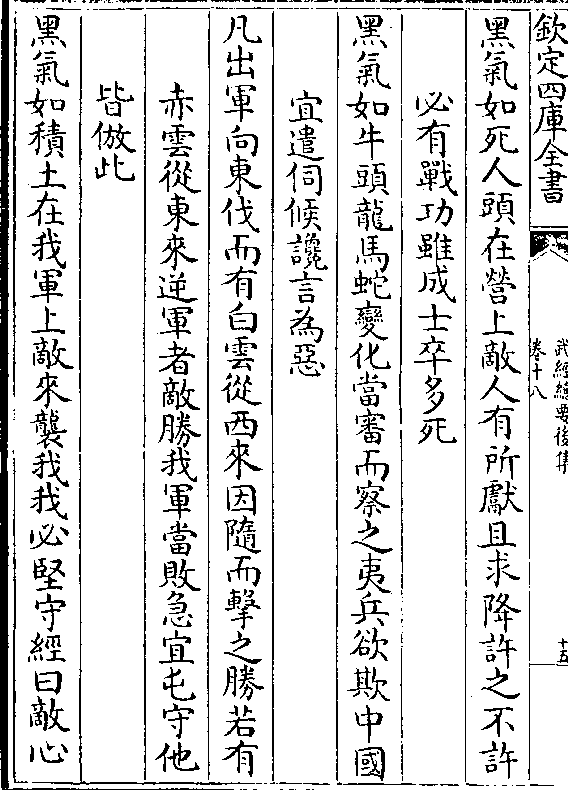 欽定四庫全書
武經總要後集
卷十八
十五
黑氣如死人頭在營上敵人有所獻且求降許之不許
必有戰功雖成士卒多死
黑氣如牛頭龍馬蛇變化當審而察之夷兵欲欺中國
宜遣伺候讒言為惡
凡出軍向東伐而有白雲從西來因隨而擊之勝若有
赤雲從東來逆軍者敵勝我軍當敗急宜屯守他
皆倣此
黑氣如積土在我軍上敵來襲我我必堅守經曰敵心